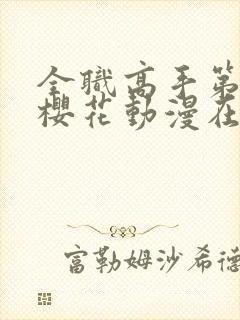 全職高手第
櫻花動漫在
富勒姆沙希德